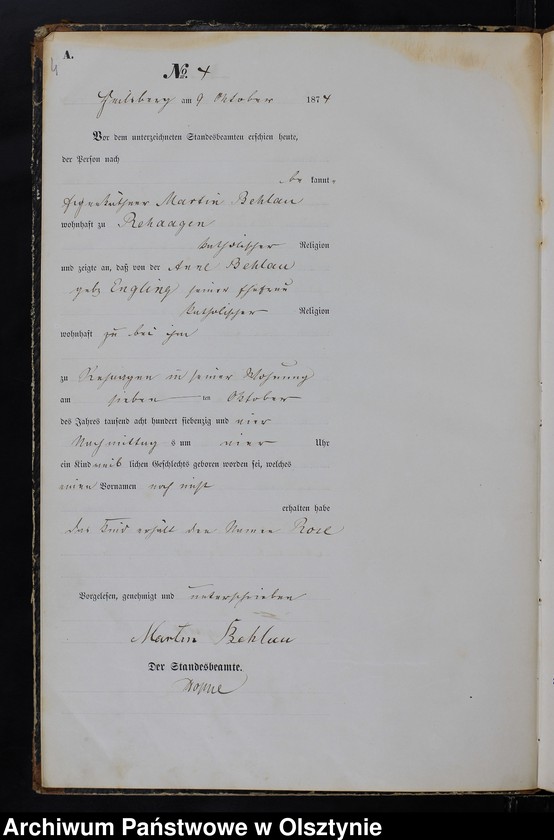 4
A.
No. 4
Heilsberg am 9 Oktober 1874
Vor dem unterzeichneten Standesbeamten erschien heute,
der Person nach
be kannt,
Eigenkäthner Martin Behlau
wohnhaft zu Rehaagen
katholischer Religion
und zeigte an, daß von der Anne Behlau
geb. Engling seiner Ehefrau
katholischer Religion
wohnhaft zu bei ihm
zu Rehaagen in seiner Wohnung
am sieben ten Oktober
des Jahres tausend acht hundert siebenzig und vier
Nachmittag s um vier Uhr
ein Kind weib lichen Geschlechts geboren worden sei, welches
einen Vornamen noch nicht
erhalten habe
das Kind erhält den Namen Rosa
Vorgelesen, genehmigt und unterschrieben
Martin Behlau
Der Standesbeamte.
Archiwum Państwowe w Olsztynie